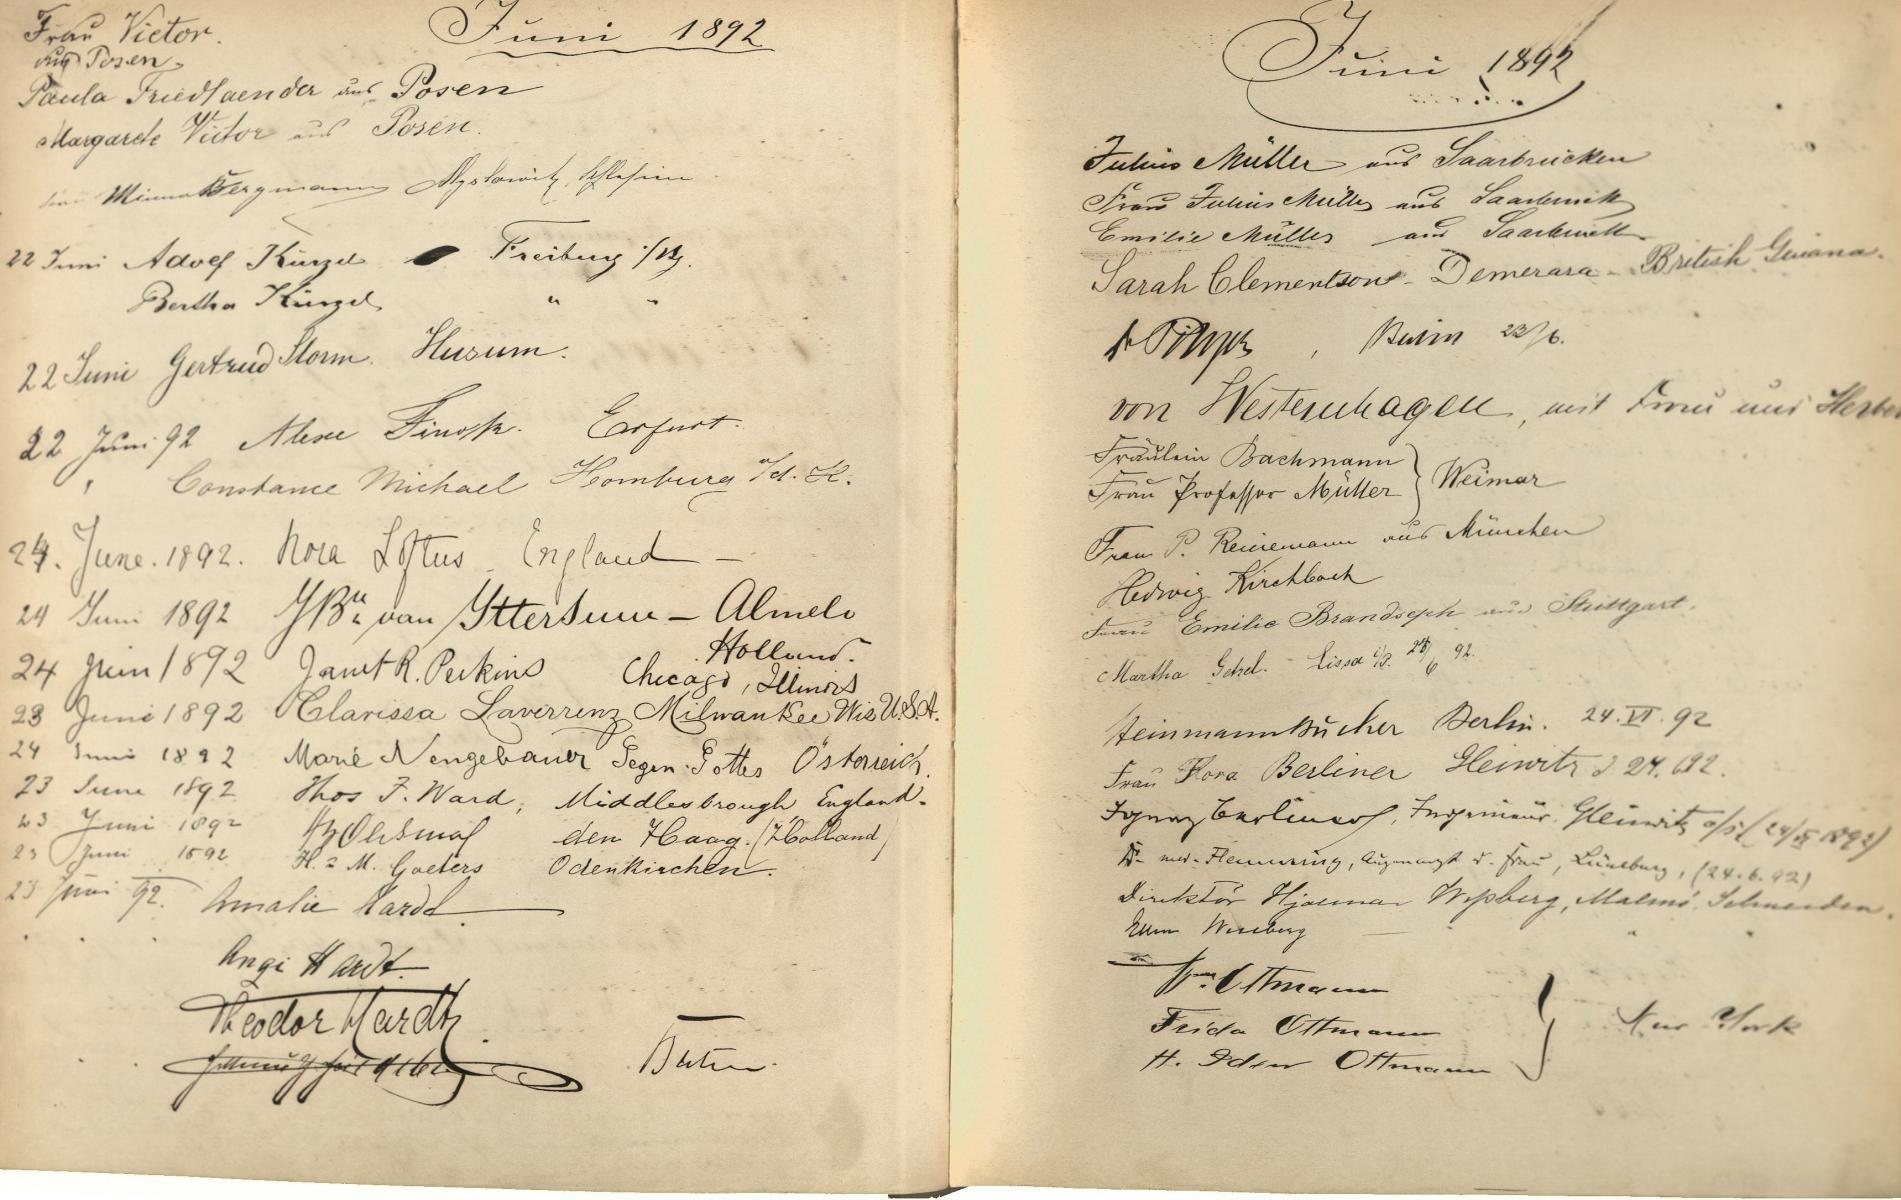 Juni 1892
Frau Victor.
aus Posen.
Paula Friedlaender aus Posen
Margarete Victor aus Posen.
Frau Minna Bergmann Myslowitz, Schlesien
22 Juni Adolf Künzel Freiburg i/
Bertha Künzel " "
22 Juni Gertrud Storm. Husum.
22 Juni 92 Erfurt.
" Constance Michael Homburg v. d. H.
24. June. 1892. Nora Loftus England
24 Juni 1892 van Ittersum – Almelo
Holland.
24 Juin 1892 Janet R. Perkins Chicago, Illinois
23 Juni 1892 Clarissa Laverrenz Milwaukee Wis U.S.A.
24 Juni 1892 Marie Nengebauer Segen-Gottes Österreich.
23 June 1892 Thos F. Ward, Middlesbrough England.
23 Juni 1892 den Haag. (Holland)
23 Juni 1892 H. & M. Goeters Odenkirchen.
23 Juni 92. Amalie Hardt
Angi Hardt
Theodor Hardt
Juni 1892
Julius Müller aus Saarbrücken
Frau Julius Müller aus Saarbrück
Emilie Müller aus Saarbrück
Sarah Clementson - Demerara - British Guiana.
Dr , Berlin 23/6.
von Westernhagen, mit Frau und
Fräulein Bachmann
Frau Professor Müller } Weimar
Frau P. Reinemann aus München
Hedwig Kirchbach
Frau Emilie Brandseph aus Stuttgart.
Martha Lissa i/P. 24/6 92.
Steinmann Bucher Berlin. 24.VI.92
Frau Flora Berliner Gleiwitz d. 24.6.92.
Ingenieur. Gleiwitz o/s (24/VI 1892)
Dr. med. Flemming, Augenarzt u. Frau, Lüneburg, (24.6.92)
Direktör Hjalmar Wessberg, Malmö. Schweden.
Ellen Wessberg " "
Wm. Ottmann
Frida Ottmann
H. Iden Ottmann } New York